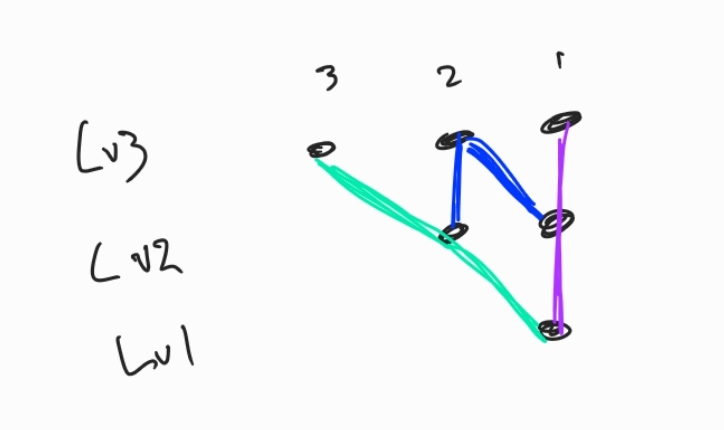 3 2 1
Lv3
Lv2
Lv1